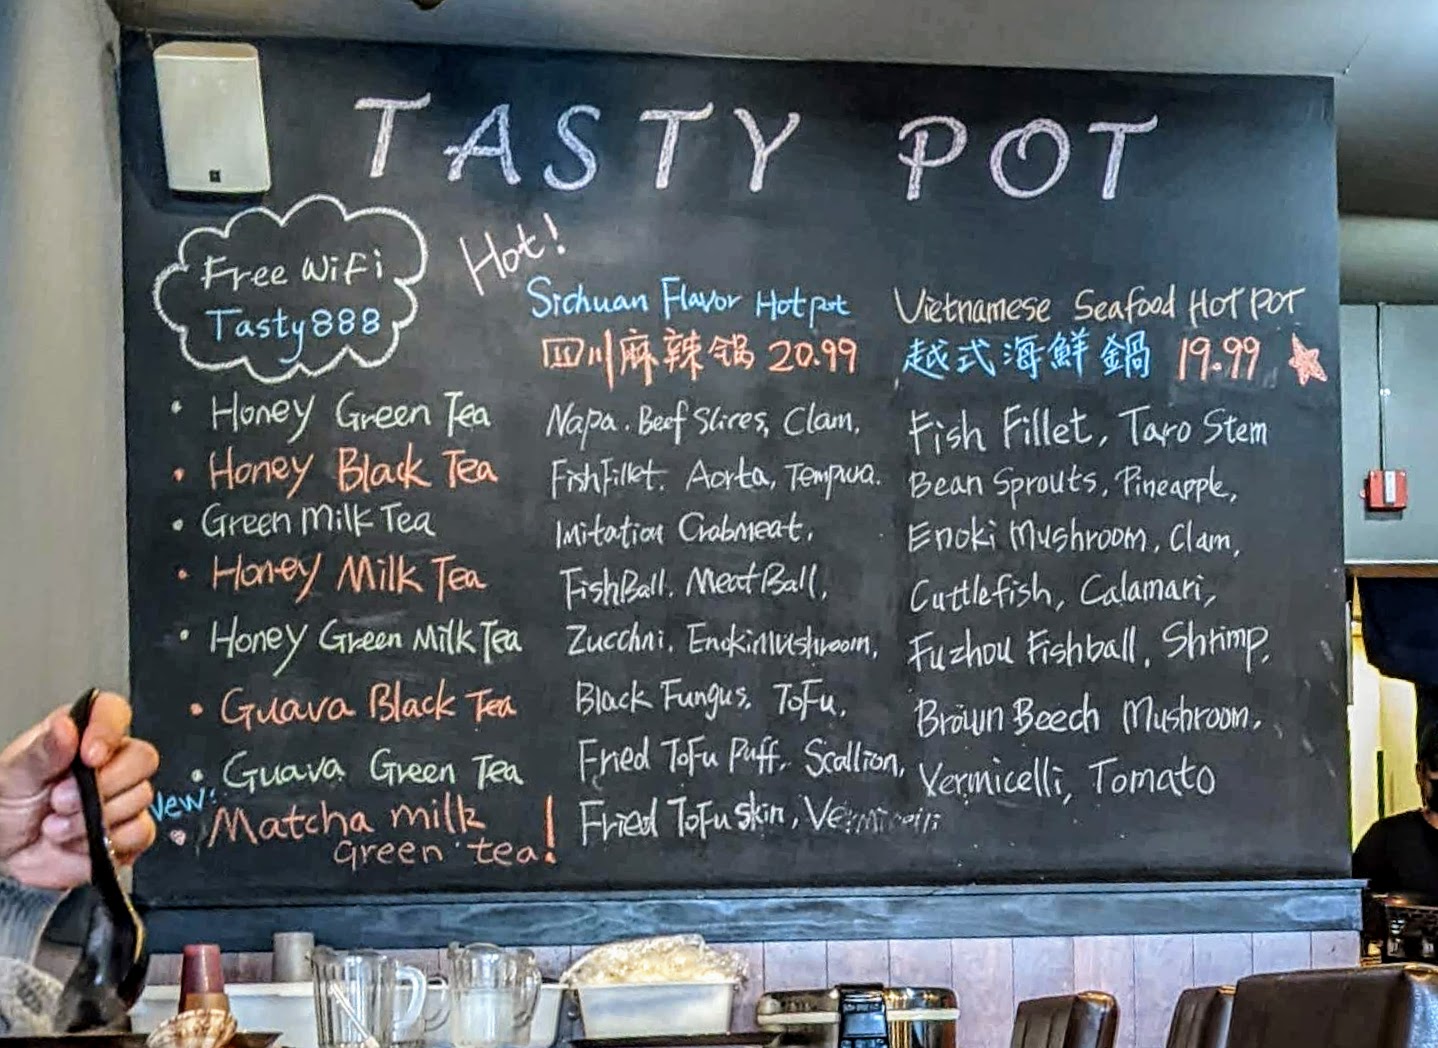 TASTY POT
Free WiFi
Tasty888
• Honey Green Tea
• Honey Black Tea
• Green Milk Tea
• Honey Milk Tea
• Honey Green Milk Tea
• Guava Black Tea
• Guava Green Tea
New!
• Matcha milk
green tea!
Hot!
Sichuan Flavor Hotpot
四川麻辣锅 20.99
Napa. Beef Slices, Clam,
Fish Fillet. Aorta, Tempura.
Imitation Crabmeat,
FishBall. MeatBall,
Zucchni. Enoki Mushroom,
Black Fungus. ToFu,
Fried ToFu Puff. Scallion,
Fried ToFu skin, Vermicelli
Vietnamese Seafood Hot Pot
越式海鮮鍋 19.99
Fish Fillet, Taro Stem
Bean Sprouts, Pineapple,
Enoki Mushroom, Clam,
Cuttlefish, Calamari,
Fuzhou Fishball, Shrimp,
Brown Beech Mushroom,
Vermicelli, Tomato